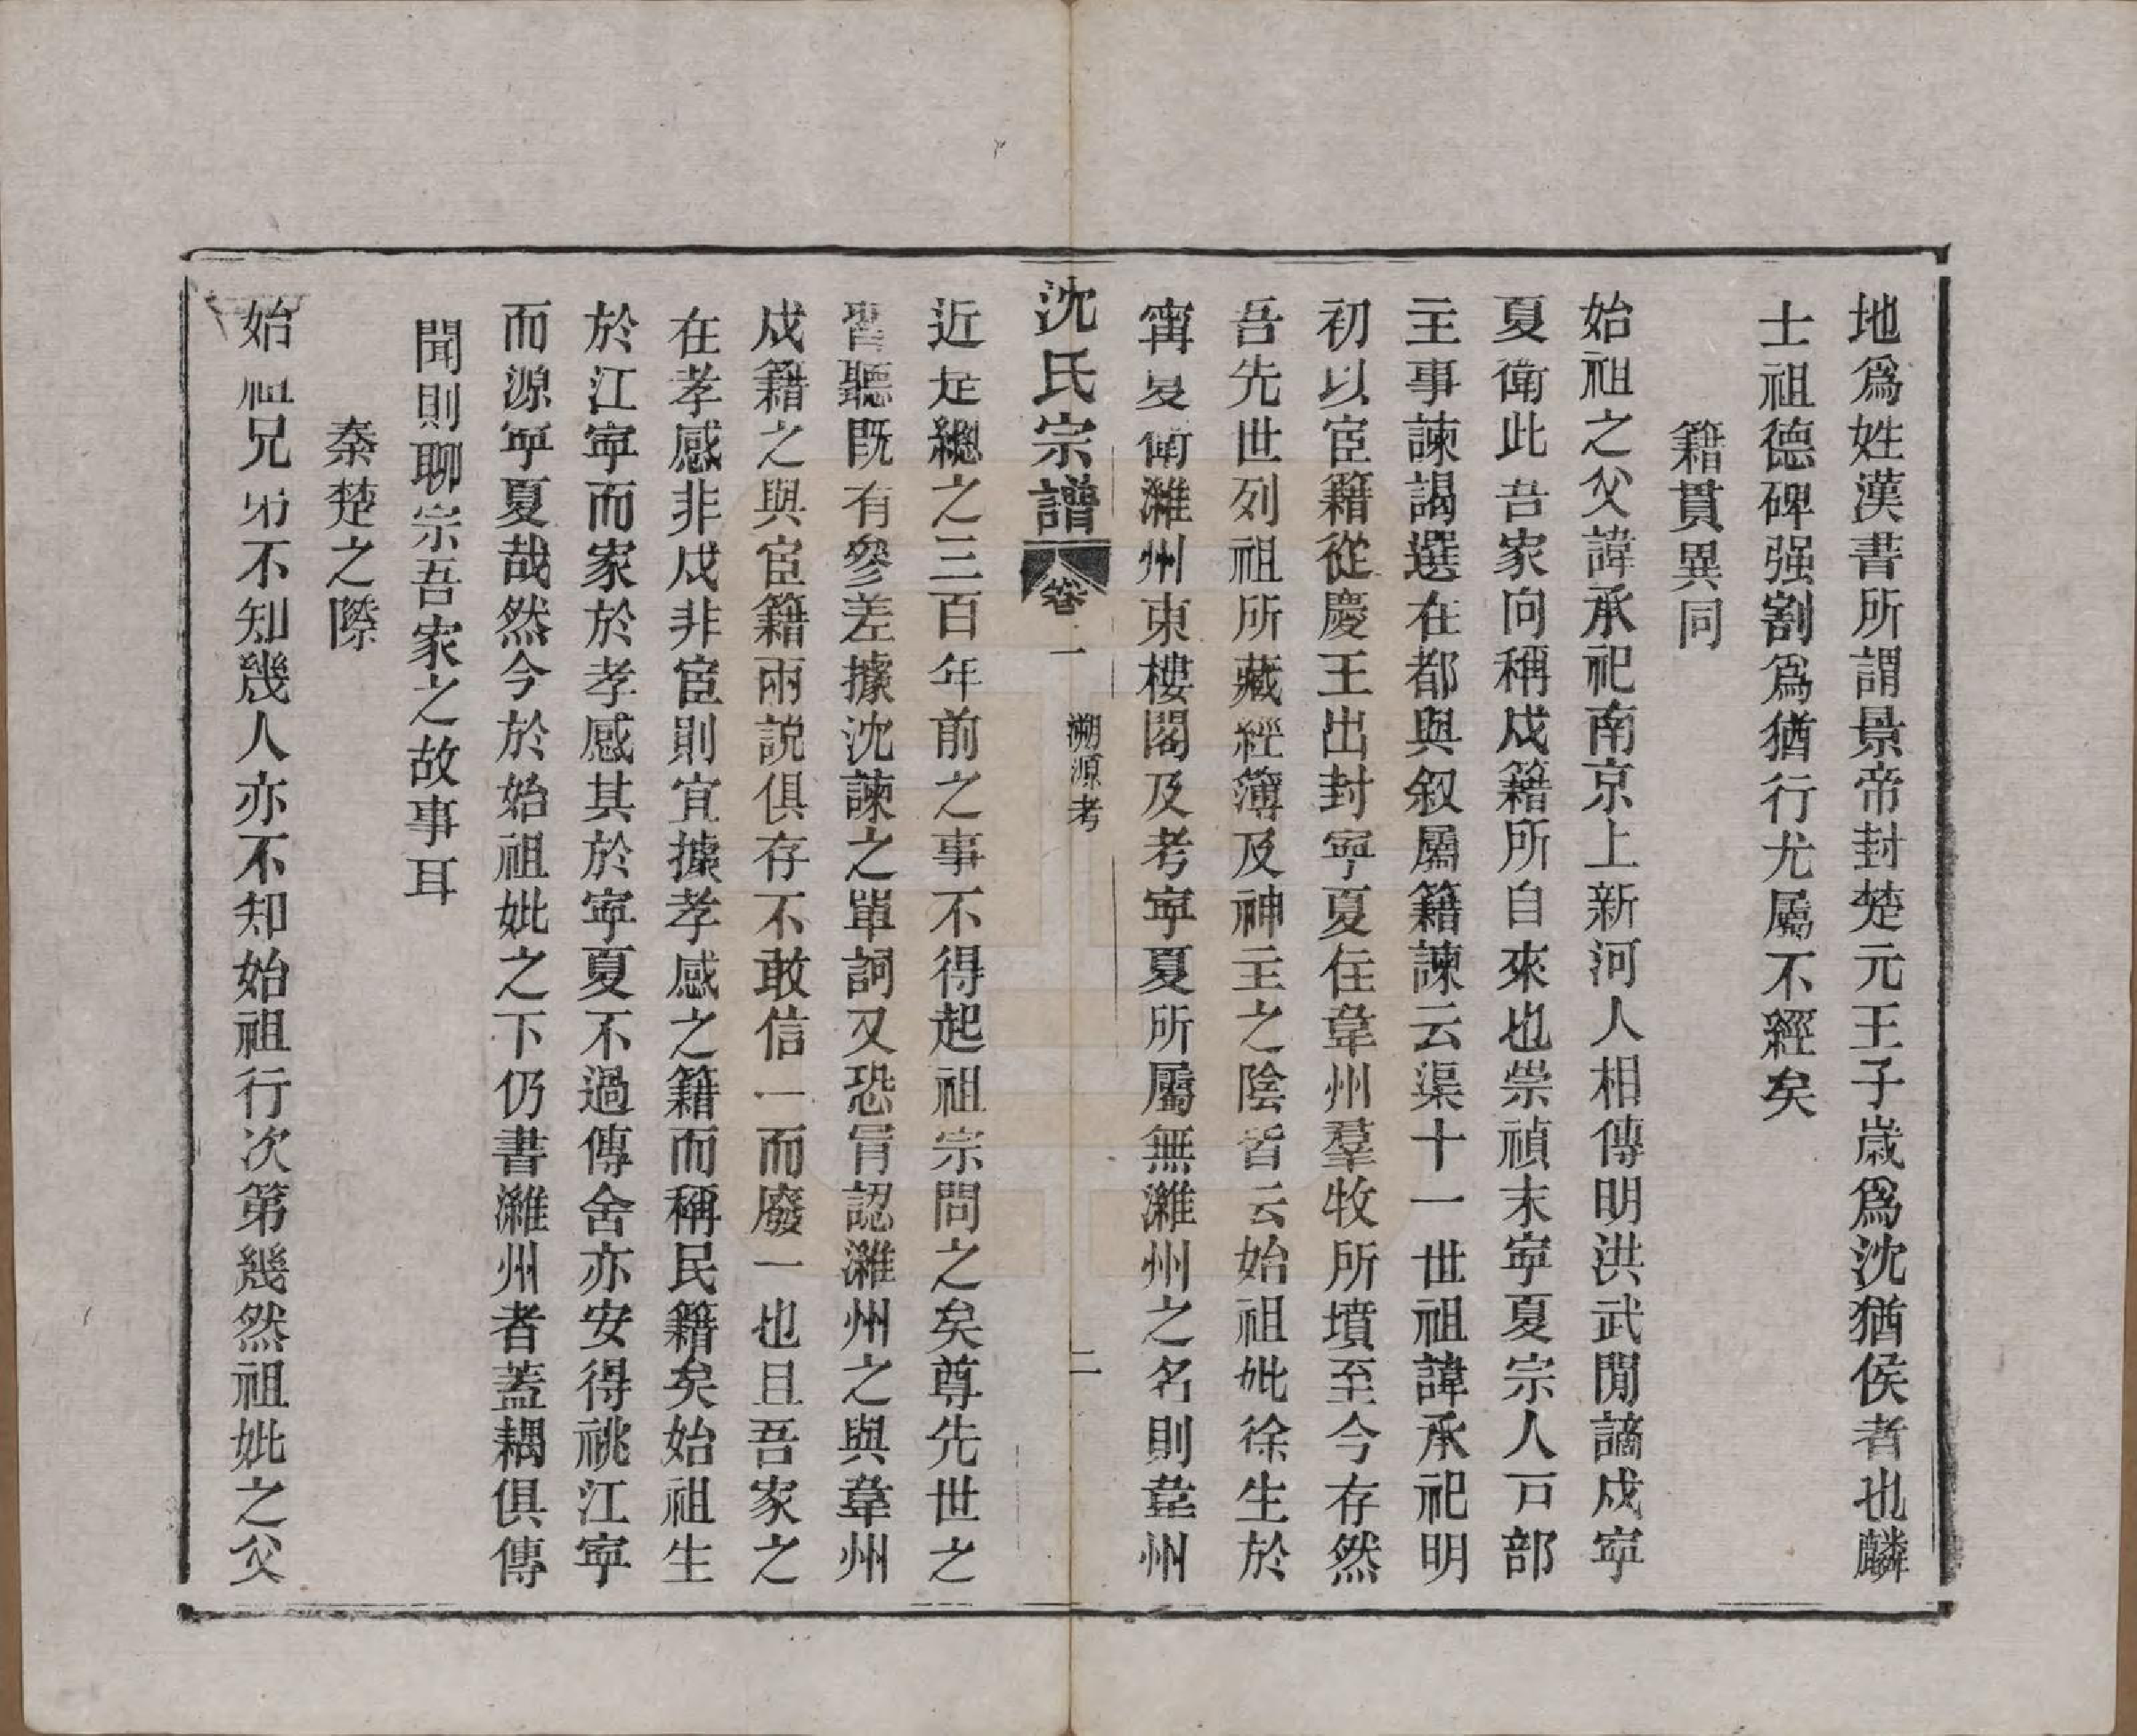 地爲姓漢書所謂景帝封楚元王子歲爲沈猶侯者也麟
士祖德碑强割爲猶行尤屬不經矣
籍貫異同
始祖之父諱承祀南京上新河人相傳明洪武閒謫戍寧
夏衛此吾家向稱戍籍所自來也崇禎末寧夏宗人戸部
主事諫謁選在都與叙屬籍諫云渠十一世祖諱承祀明
初以宦籍從慶王出封寧夏住韋州羣牧所墳至今存然
吾先世列祖所藏經簿及神主之陰皆云始祖妣徐生於
甯夏衛濰州東樓閣及考寧夏所屬無濰州之名則韋州
沈氏宗譜 卷一 溯源考 二
近是總之三百年前之事不得起祖宗問之矣尊先世之
習聽既有參差據沈諫之單詞又恐冐認濰州之與韋州
戍籍之與宦籍兩說俱存不敢信一而廢一也且吾家之
在孝感非戍非宦則宜據孝感之籍而稱民籍矣始祖生
於江寧而家於孝感其於寧夏不過傳舍亦安得祧江寧
而源寧夏哉然今於始祖妣之下仍書濰州者蓋耦俱傳
聞則聊宗吾家之故事耳
秦楚之際
始祖兄弟不知幾人亦不知始祖行次第幾然祖妣之父